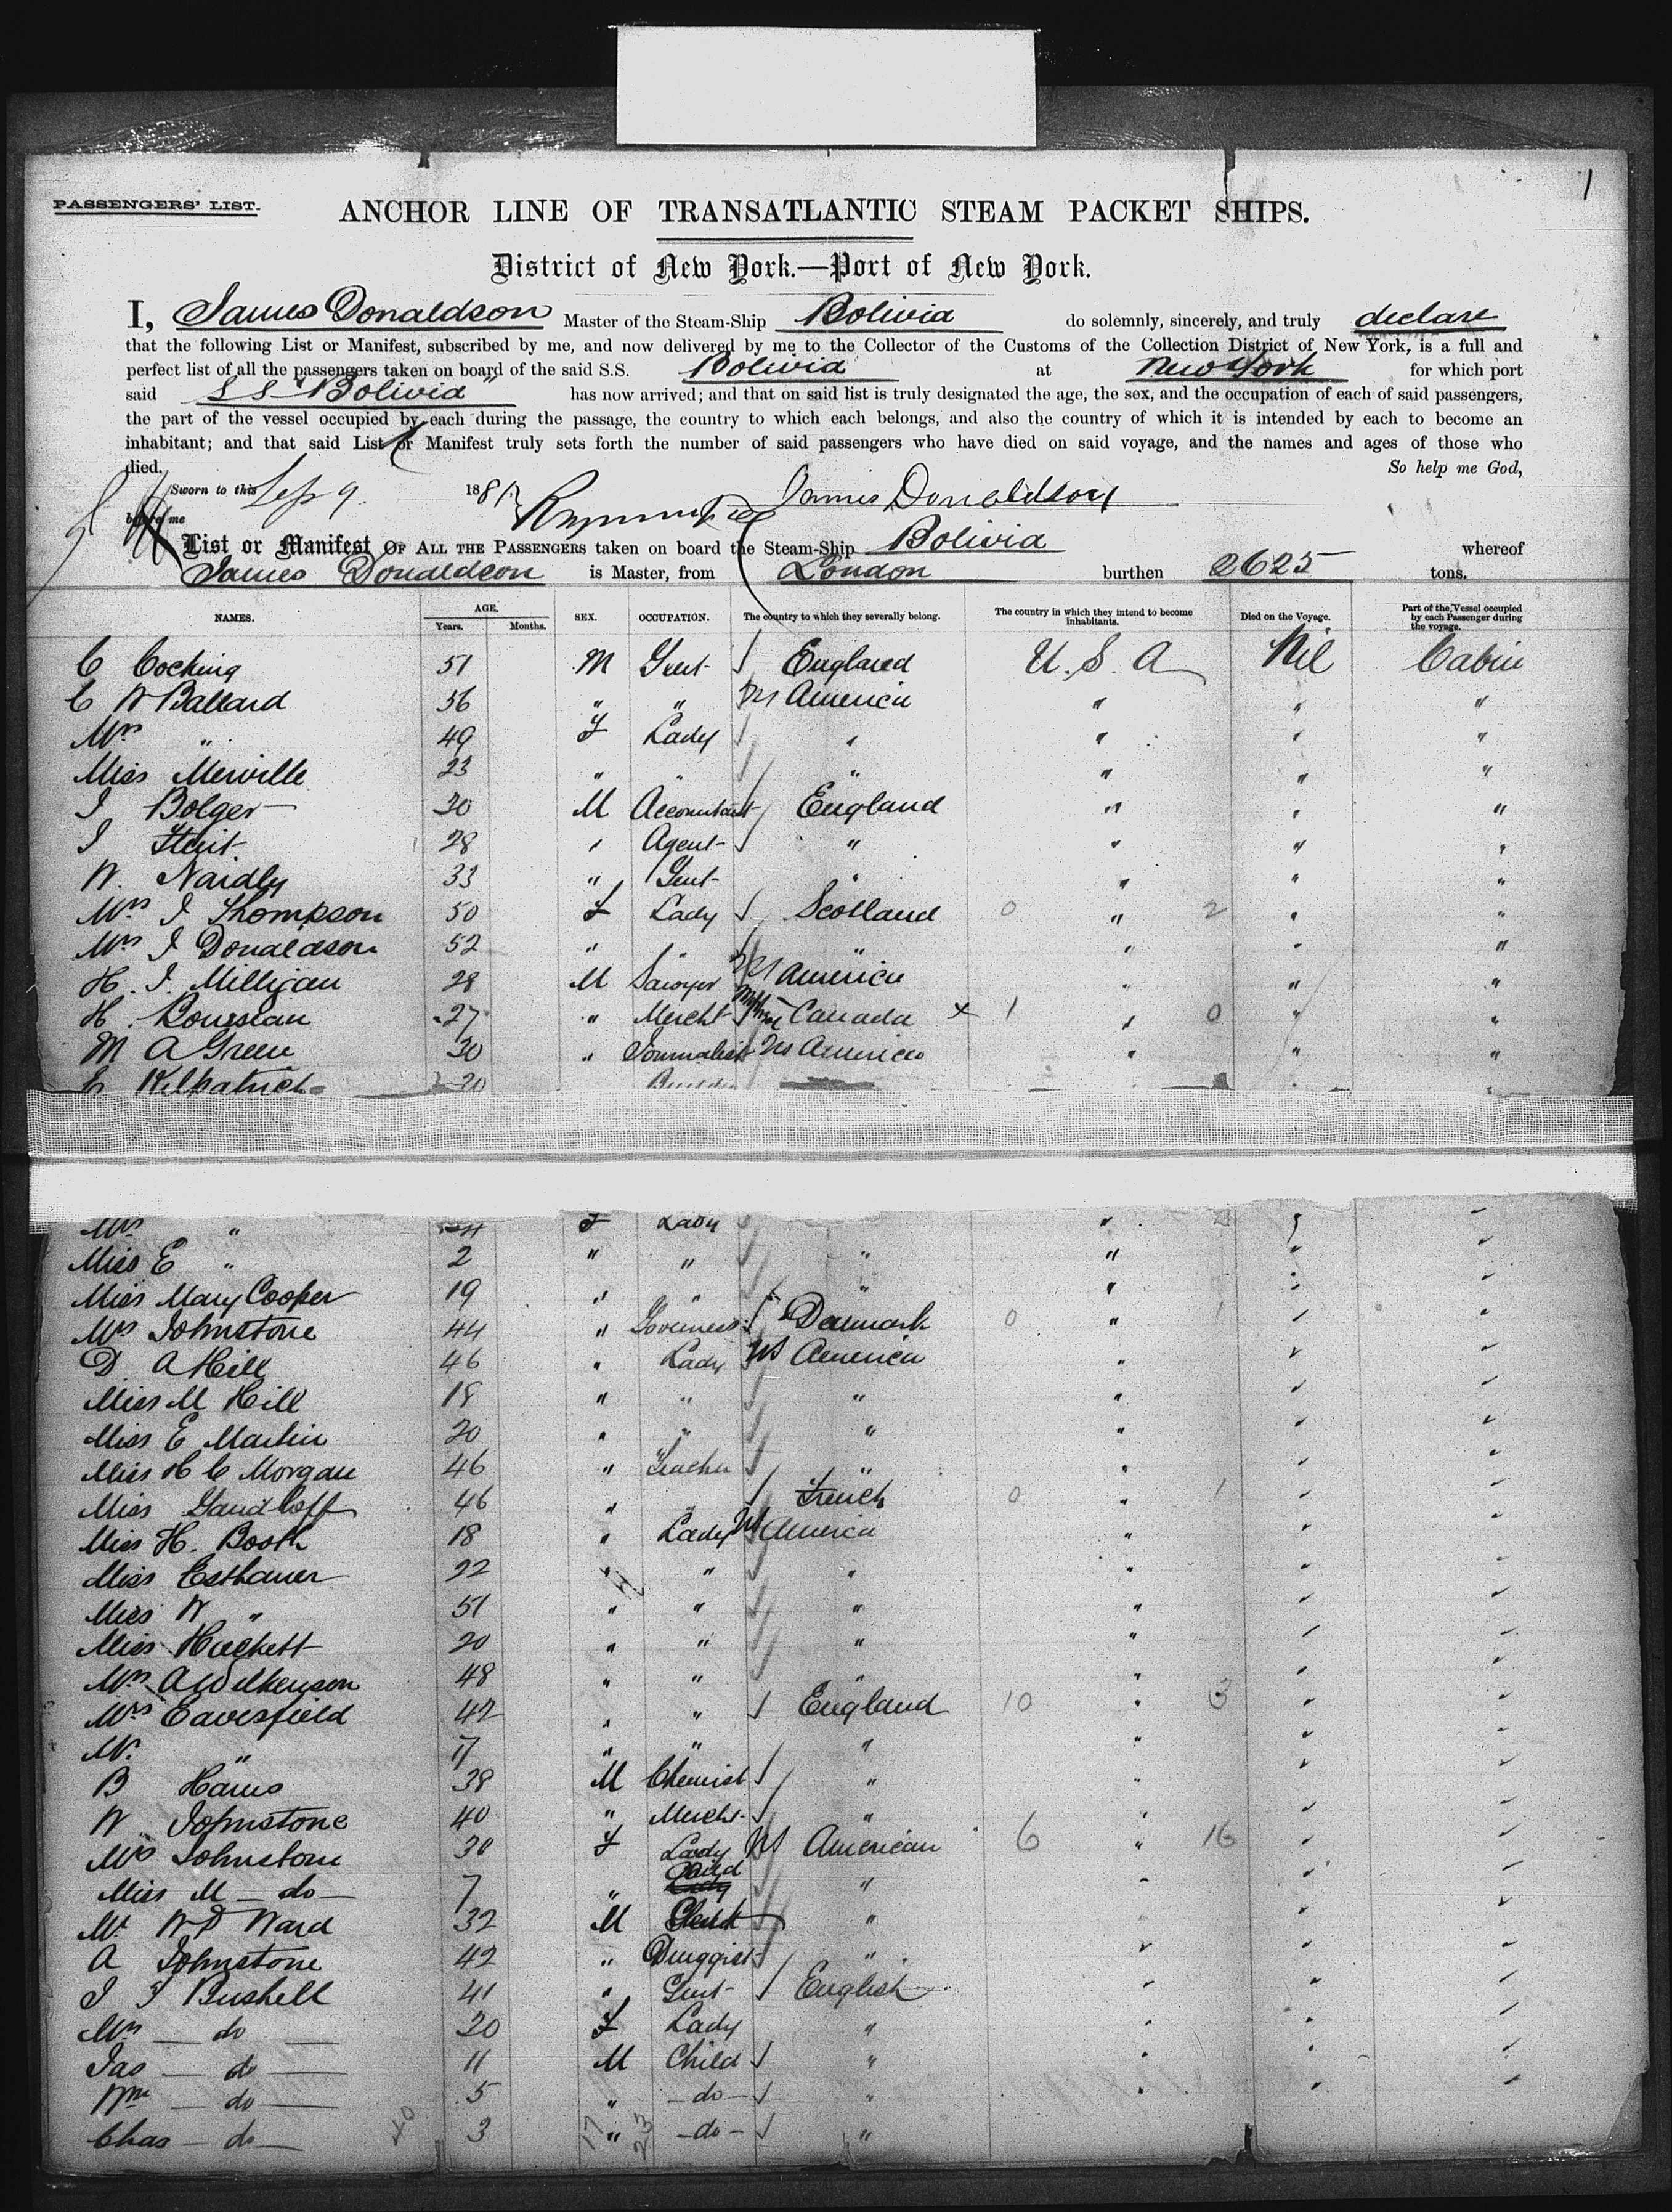 1
PASSENGERS' LIST.
ANCHOR LINE OF TRANSATLANTIC STEAM PACKET SHIPS.
District of New York.—Port of New York.
I, James Donaldson Master of the Steam-Ship Bolivia do solemnly, sincerely, and truly declare
that the following List or Manifest, subscribed by me, and now delivered by me to the Collector of the Customs of the Collection District of New York, is a full and
perfect list of all the passengers taken on board of the said S.S. Bolivia at New York for which port
said SS "Bolivia" has now arrived; and that on said list is truly designated the age, the sex, and the occupation of each of said passengers,
the part of the vessel occupied by each during the passage, the country to which each belongs, and also the country of which it is intended by each to become an
inhabitant; and that said List or Manifest truly sets forth the number of said passengers who have died on said voyage, and the names and ages of those who
died. So help me God,
Sworn to this Sep 9. 1881 James Donaldson
before me
List or Manifest OF ALL THE PASSENGERS taken on board the Steam-Ship Bolivia whereof
James Donaldson is Master, from London burthen 2625 tons.
NAMES. AGE. Years. Months. SEX. OCCUPATION. The country to which they severally belong. The country in which they intend to become inhabitants. Died on the Voyage. Part of the Vessel occupied by each Passenger during the voyage.
C Cocking 51 M Gent England U.S.A Nil Cabin
C W Ballard 56 " " US America " " "
Mrs " 49 F Lady " " " "
Miss Merville 23 " " " " " "
J Bolger 30 M Accountant England " " "
J 28 " Agent " " " "
W. Naidly 33 " Gent " " " "
Mrs J Thompson 50 F Lady Scotland 0 " 2 " "
Mrs J Donaldson 52 " " " " " "
H. J. Milligan 28 M Lawyer US America " " "
H. 27 " Mercht Canada x 1 " 0 " "
M A Green 30 " Journalist US America " " "
Kilpatrick 30
Mrs " F Lady " " "
Miss E " 2 " " " " " "
Miss Mary Cooper 19 " " " " " "
Mrs Johnstone 44 " Governess Denmark 0 " 1 " "
D A Hill 46 " Lady US America " " "
Miss M Hill 18 " " " " " "
Miss E Martin 20 " " " " " "
Miss H C Morgan 46 " Teacher " " " "
Miss 46 " " French 0 " 1 " "
Miss H. Booth 18 " Lady US America " " "
Miss Esthauer 22 " " " " " "
Miss W " 51 " " " " " "
Miss Hackett 20 " " " " " "
Mrs A Wilkenson 48 " " " " " "
Mrs Eavesfield 42 " " England 10 " 3 " "
" 17 " " " " " "
B Harris 38 M Chemist " " " "
W Johnstone 40 " Mercht " " " "
Mrs Johnstone 30 F Lady US American 6 " 16 " "
Miss M — do — 7 " Child " " " "
Mr W D Ward 32 M " " " "
A Johnstone 42 " Druggist " " " "
J F Bushell 41 " Gent English " " "
Mrs — do — 30 F Lady " " " "
Jas — do — 11 M Child " " " "
Wm — do — 5 " - do - " " " "
Chas — do — 3 " - do - "
40 17 23